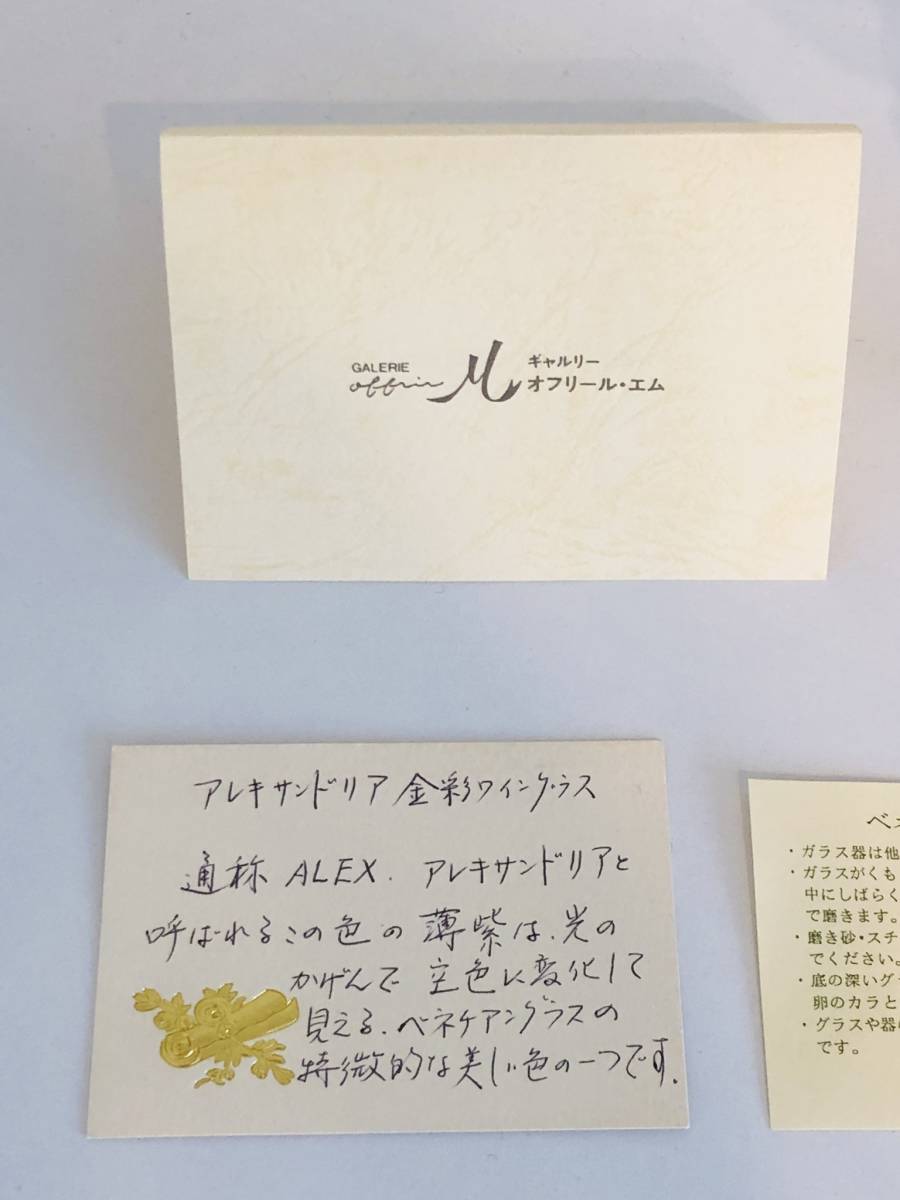 GALERIE
offrir M
ギャルリー
オフリール・エム
アレキサンドリア 金彩ワイングラス
通称 ALEX. アレキサンドリアと
呼ばれるこの色の薄紫は、光の
かげんで空色に変化して
見える、ベネチアングラスの
特徴的な美しい色の一つです.
ベネ
・ガラス器は他
・ガラスがくも
中にしばらく
で磨きます。
・磨き砂・スチ
でください。
・底の深いグ
卵のカラと
・グラスや器
です。